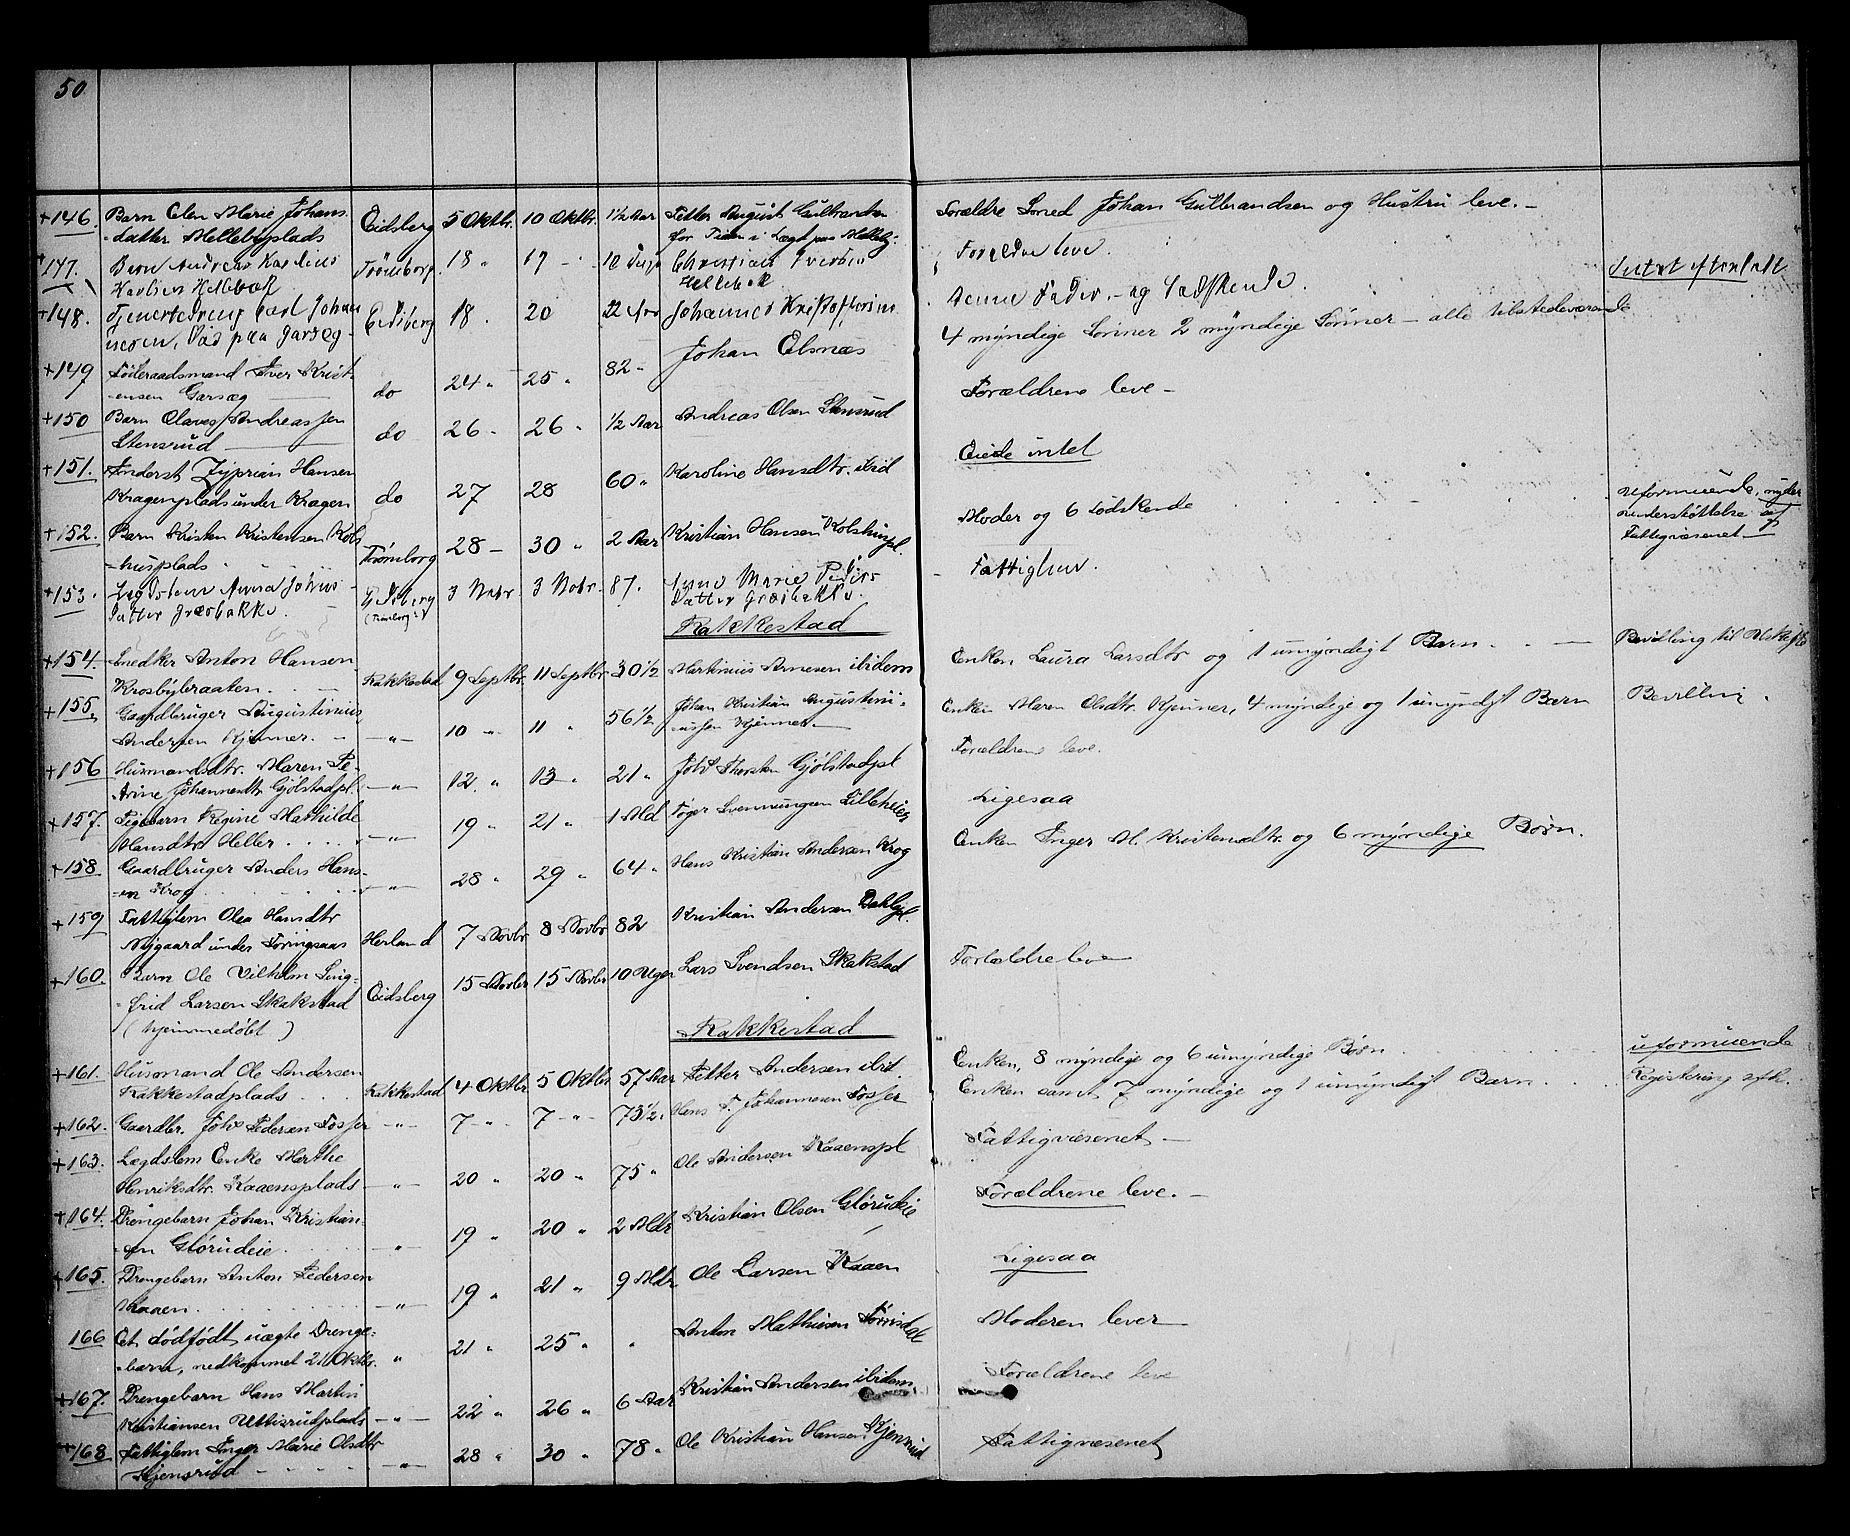 50
+146. Barn Elen Marie Johans- Eidsberg 5 Oktbr. 10 Oktbr. 1½ Aar Fetter August Gulbrandsen Forældre Smed Johan Gulbrandsen og Hustru leve.-
datter Mellebyplads for Tiden i Lægd paa Melleby.
+147. Barn Andreas Karelius Trømborg 18 " 19 12 Dage Christian Iversen Forældre leve. Intet efterladt
Hellebæk Hellebæk
+148. Tjenestedreng Carl Johan Eidsberg 18. 20 22 Aar Johannes Kristoffersen Fader - og Sødskende.
paa Garseg-
+149 Føderaadsmand Iver Krist- do 24 " 25 " 82 - Johan Elsnæs 4 myndige Sønner 2 myndige Sønner - alle tilstedeværende
-ensen Garsæg
+150 Barn Olaves Andreassen do 26 - 26 " ½ Aar Andreas Olsen Stensrud Forældrene leve -
Stensrud
+151. Inderst Zyprian Hansen do 27 28 60 " Karoline Hansdtr. ibid Eiede intet
Kragenplads under Kragen
+152. Barn Kristen Kristensen Kols- Trømborg 28 - 30 " 2 Aar Kristian Hansen Kolshuspl. Moder og 6 Sødskende uformuende, nyder
-husplads understøttelse af
Fattigvæsenet
+153. Lægdslem Anna Johns- Eidsberg 3 Novbr. 3 Novbr. 87. Anne Marie Peders Fattighus.
datter Græsbakke. (Trømborg) datter Græsbakke.
Rakkestad
+154. Snedker Anton Hansen Rakkestad 9 Septbr. 11 Septbr 30½ Martinius Arnesen ibidem Enken Laura Larsdtr og 1 umyndigt Barn. Bevilling til Uskifte
Krosbybraaten.
+155. Gaardbruger Augustinius -"- 10 -"- 11 " 56½ Johan Kristian Augustini- Enken Maren Olsdtr. Kjenner, 4 myndige og 1 umyndigt Barn Bevilling.
Andersen Kjenner. -ussen Kjenner
+156 Husmandsdtr. Maren Pe- -"- 12. " 13 " 21 " Johs Thorsten Gjølstadpl Forældrene leve.
-trine Johannesdtr. Gjølstadpl.
+157. Pigebarn Regine Mathilde -"- 19 " 21 " 1 Md Roger Svenningsen Lilleheier Ligesaa
Hansdtr. Heller
+158 Gaardbruger Anders Hans- -"- 28 " 29 " 64 " Hans Kristian Andersen Krog Enken Inger M. Kristensdtr. og 6 myndige Børn.
-en Krog
+159 Fattiglem Olea Hansdtr Herland 7 Novbr 8 Novbr 82 Kristian Andersen Bakkepl.
Nygaard under Foringsaas
+160. Barn Ole Vilhelm Sig- Eidsberg 15 Novbr 15 Novbr 10 Uger Lars Svendsen Skakstad Forældre leve
-frid Larsen Skakstad
(hjemmedøbt)
Rakkestad
+161. Husmand Ole Andersen Rakkestad 4 Oktbr. 5 Oktbr. 57 Aar Petter Andersen ibid. Enken, 8 myndige og 6 umyndige Børn uformuende
Rakkestadplads
+162. Gaardbr. Johs Pedersen Fosser -"- 7 -"- 7 -"- 73½. Hans P. Johannesen Fosser Enken samt 7 myndige og 1 umyndigt Barn. Registering
+163. Lægdslem Enke Marthe -"- 20 " 20 " 75 " Ole Andersen Kaaenspl Fattigvæsenet -
Henriksdtr. Kaaensplads
+164. Drengebarn Johan Kristian- " 19 " 20 " 2 Mdr Kristian Olsen Glørudeie Forældrene leve. -
-sen Glørudeie
+165. Drengebarn Anton Pedersen -"- 19 " 21 " 9 Mdr Ole Larsen Kaaen Ligesaa
Kaaen
166 Et dødfødt uægte Drenge- " 21 " 25 " " Anton Mathisen Moderen lever
-barn, nedkommet 21 Oktbr.
+167. Drengebarn Hans Martin -"- 22 " 26 " 6 Aar Kristian Andersen ibidem Forældrene leve
Kristiansen Uttisrudplads
+168 Fattiglem Inger Marie Olsdtr -"- 28 " 30 " 78 " Ole Kristian Hansen Kjensrud Fattigvæsenet
Kjensrud